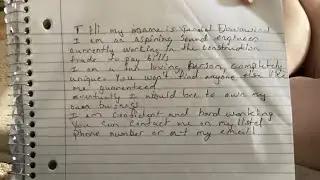 Hi my name is
I am an aspiring sound engineer
currently working in the construction
trade to pay bills
I am a fun loving person, completely
unique. You won't find anyone else like
me guaranteed
eventually I would love to own my
own business
I am confident and hard working
You can contact me on my listed
phone number or at my email!